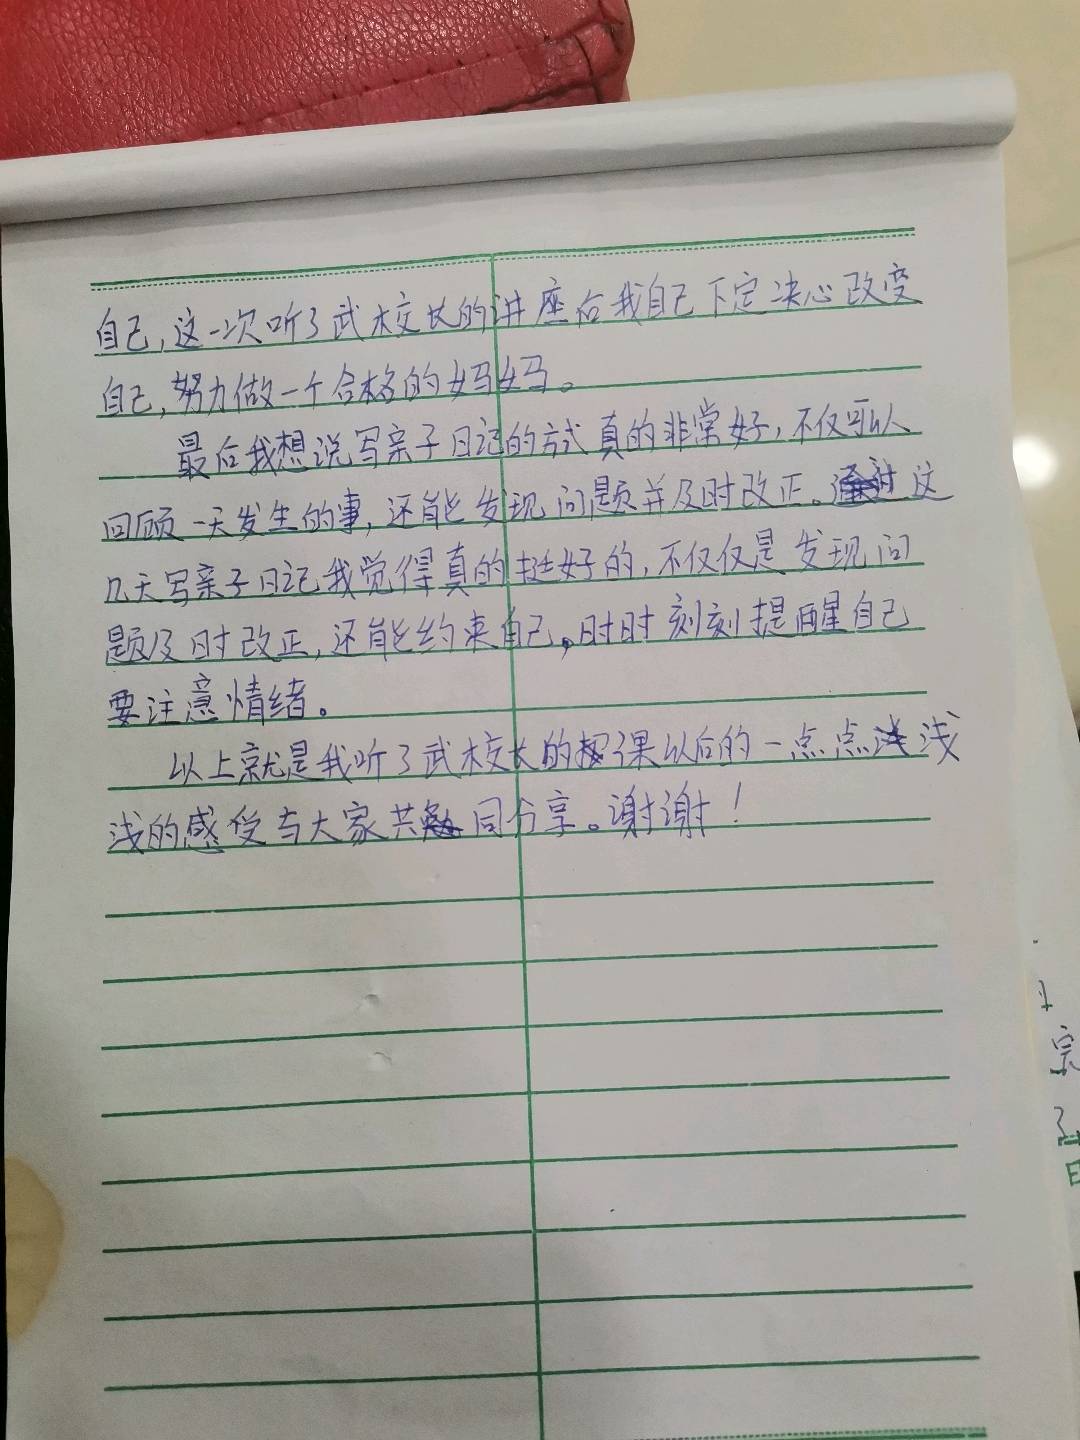 自己，这一次听了武校长的讲座后我自己下定决心改变
自己，努力做一个合格的妈妈。
最后我想说写亲子日记的方式真的非常好，不仅可以
回顾一天发生的事，还能发现问题并及时改正。这
几天写亲子日记我觉得真的挺好的，不仅仅是发现问
题及时改正，还能约束自己，时时刻刻提醒自己
要注意情绪。
以上就是我听了武校长的课以后的一点点浅
浅的感受与大家共同分享。谢谢！
宗